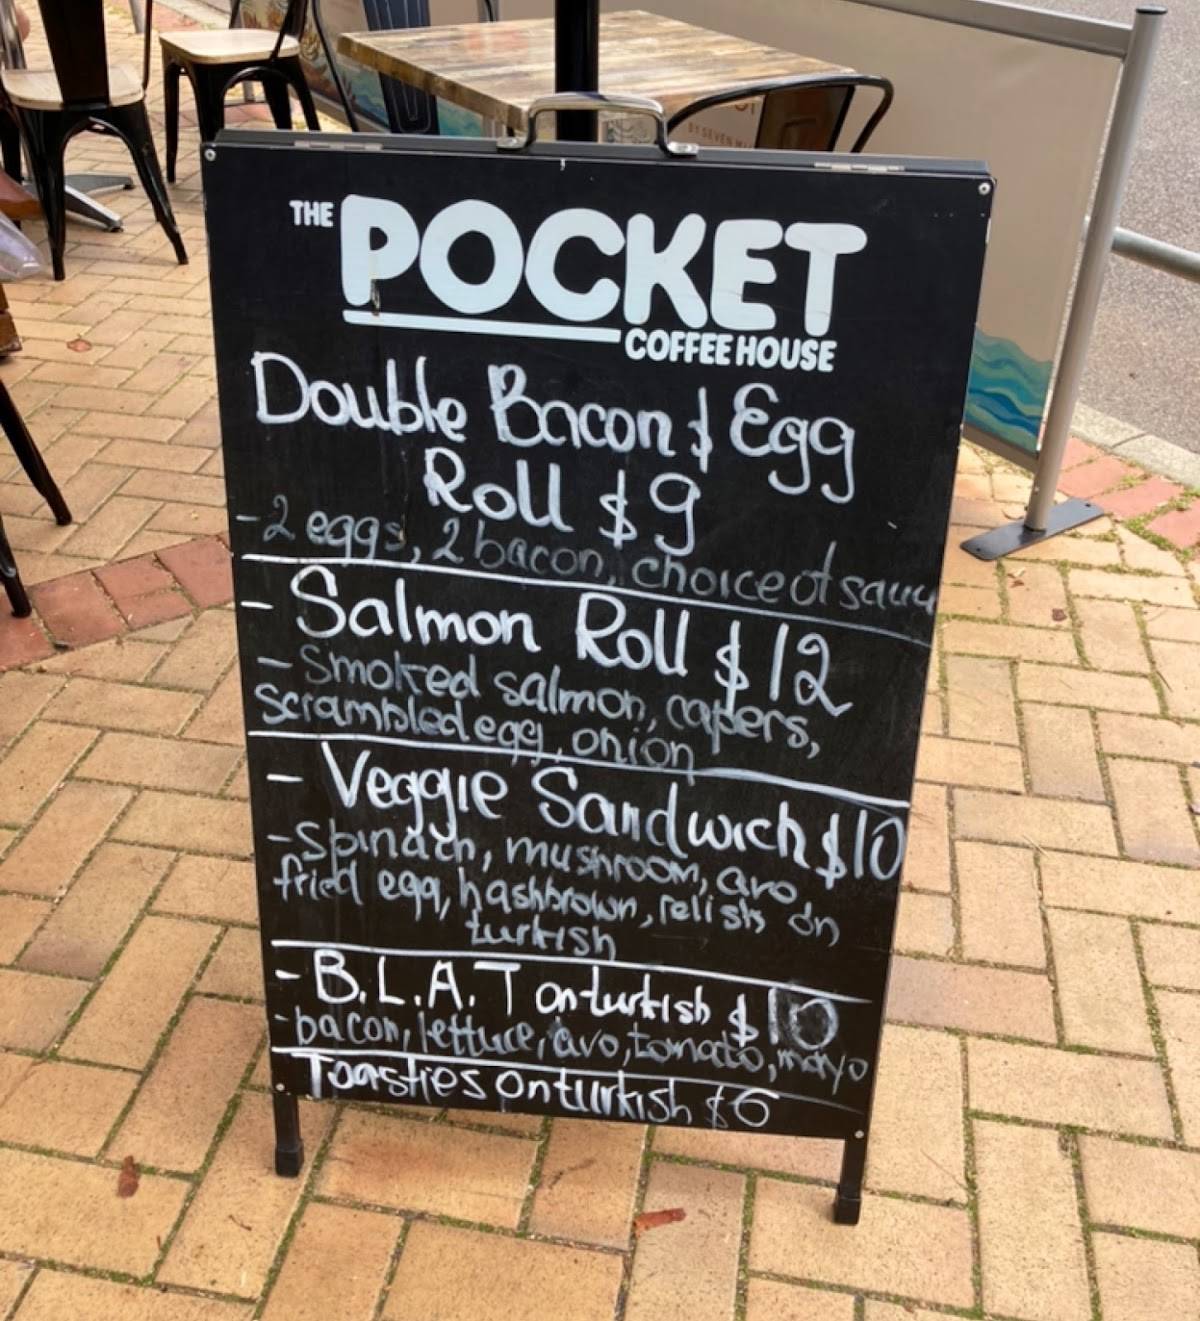 THE
POCKET
COFFEE HOUSE
Double Bacon & Egg
Roll $9
-2 eggs, 2 bacon, choice of sauc
- Salmon Roll $12
- Smoked salmon, capers,
scrambled egg, onion
- Veggie Sandwich $10
- Spinach, mushroom, avo
fried egg, hashbrown, relish on
turkish
- B.L.A.T on turkish $10
- bacon, lettuce, avo, tomato, mayo
Toasties on turkish $6
BY SEVEN